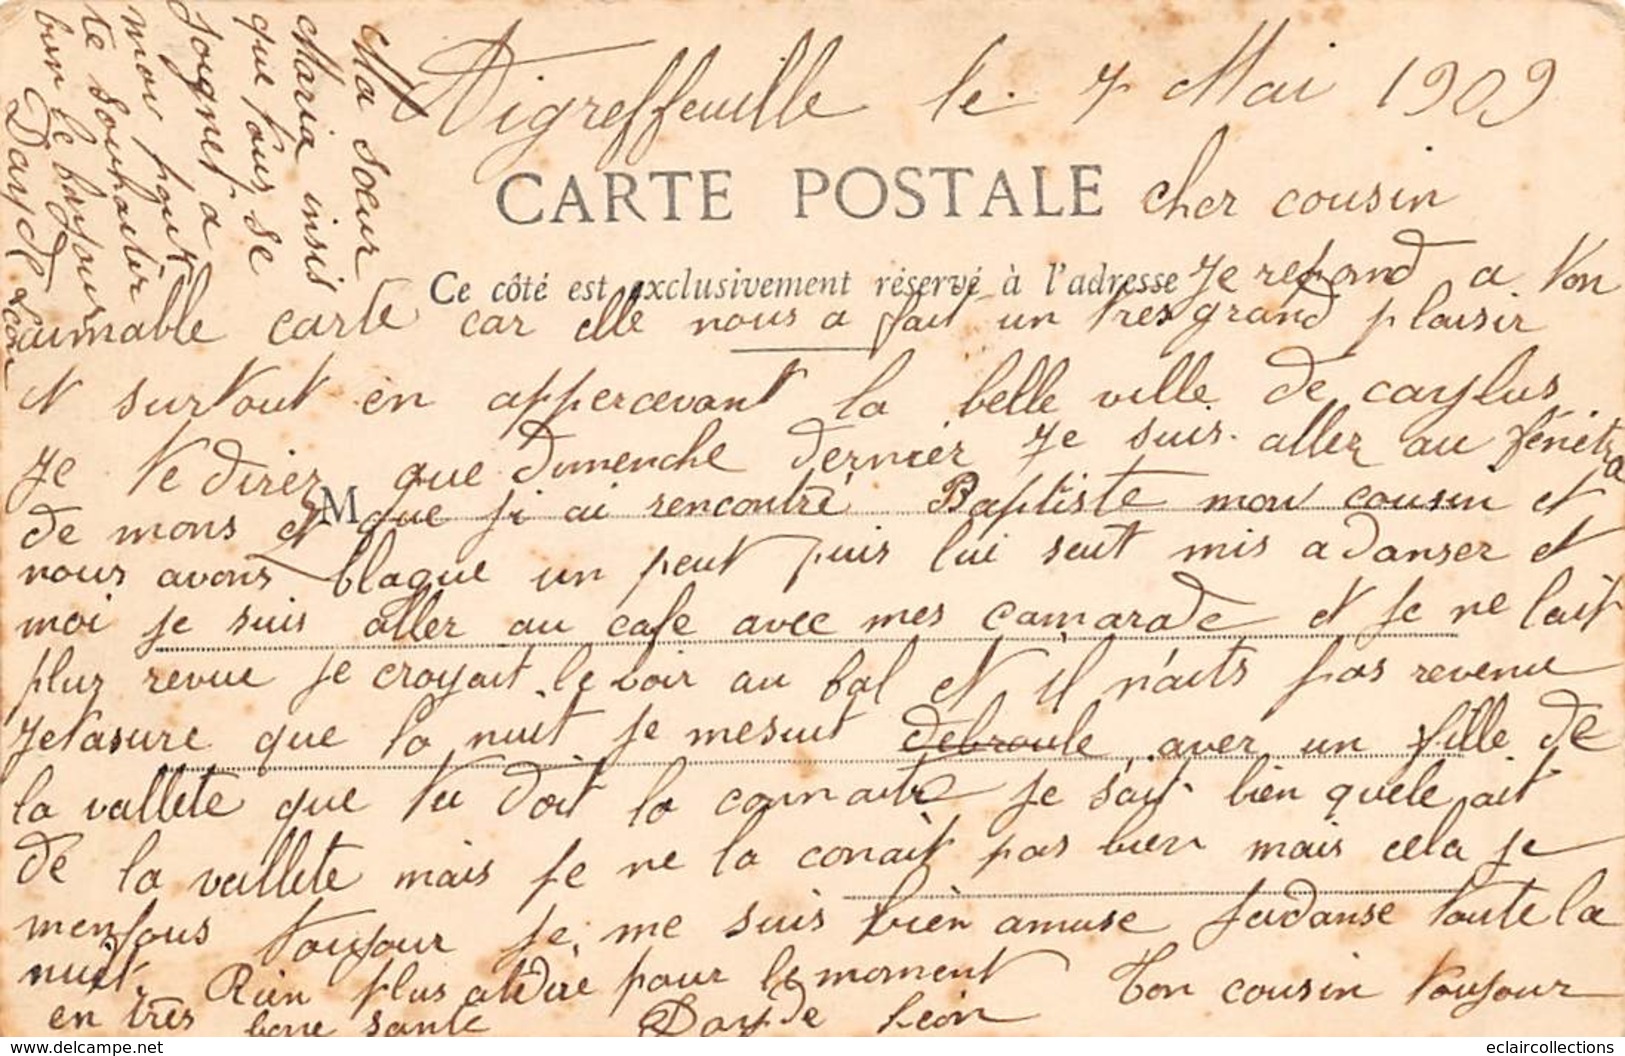 Aigreffeuille le 7 Mai 1909
CARTE POSTALE
cher cousin
Ce côté est exclusivement réservé à l'adresse
Je repond a ton
aimable carte car elle nous a fait un tres grand plaisir
et surtout en appercevant la belle ville de caylus
Je te direz que dimenche dernier Je suis aller au fénétra
de mons et que j'ai rencontré Baptiste mon cousin et
M
nous avons blaque un peut puis lui seut mis a danser et
moi je suis aller au cafe avec mes camarade et je ne lait
plus revue je croyait le voir au bal et il n'aits pas revenu
Jetasure que la nuit je mesuit debroule aver un fille de
la vallete que tu doit la connaitre je sait bien quele ait
de la vallete mais je ne la conait pas bien mais cela je
menfous toujour je me suis bien amuse jaidanse toute la
nuit. Rien plus atdire pour le moment Ton cousin toujour
en très bone sante Dayde Léon
Ma soeur
Maria insis
que tous se
joignet a
moi pour
te souhaiter
bien le bonjour
Dayde Léon
© eclaircollections.delcampe.net
eclaircollections